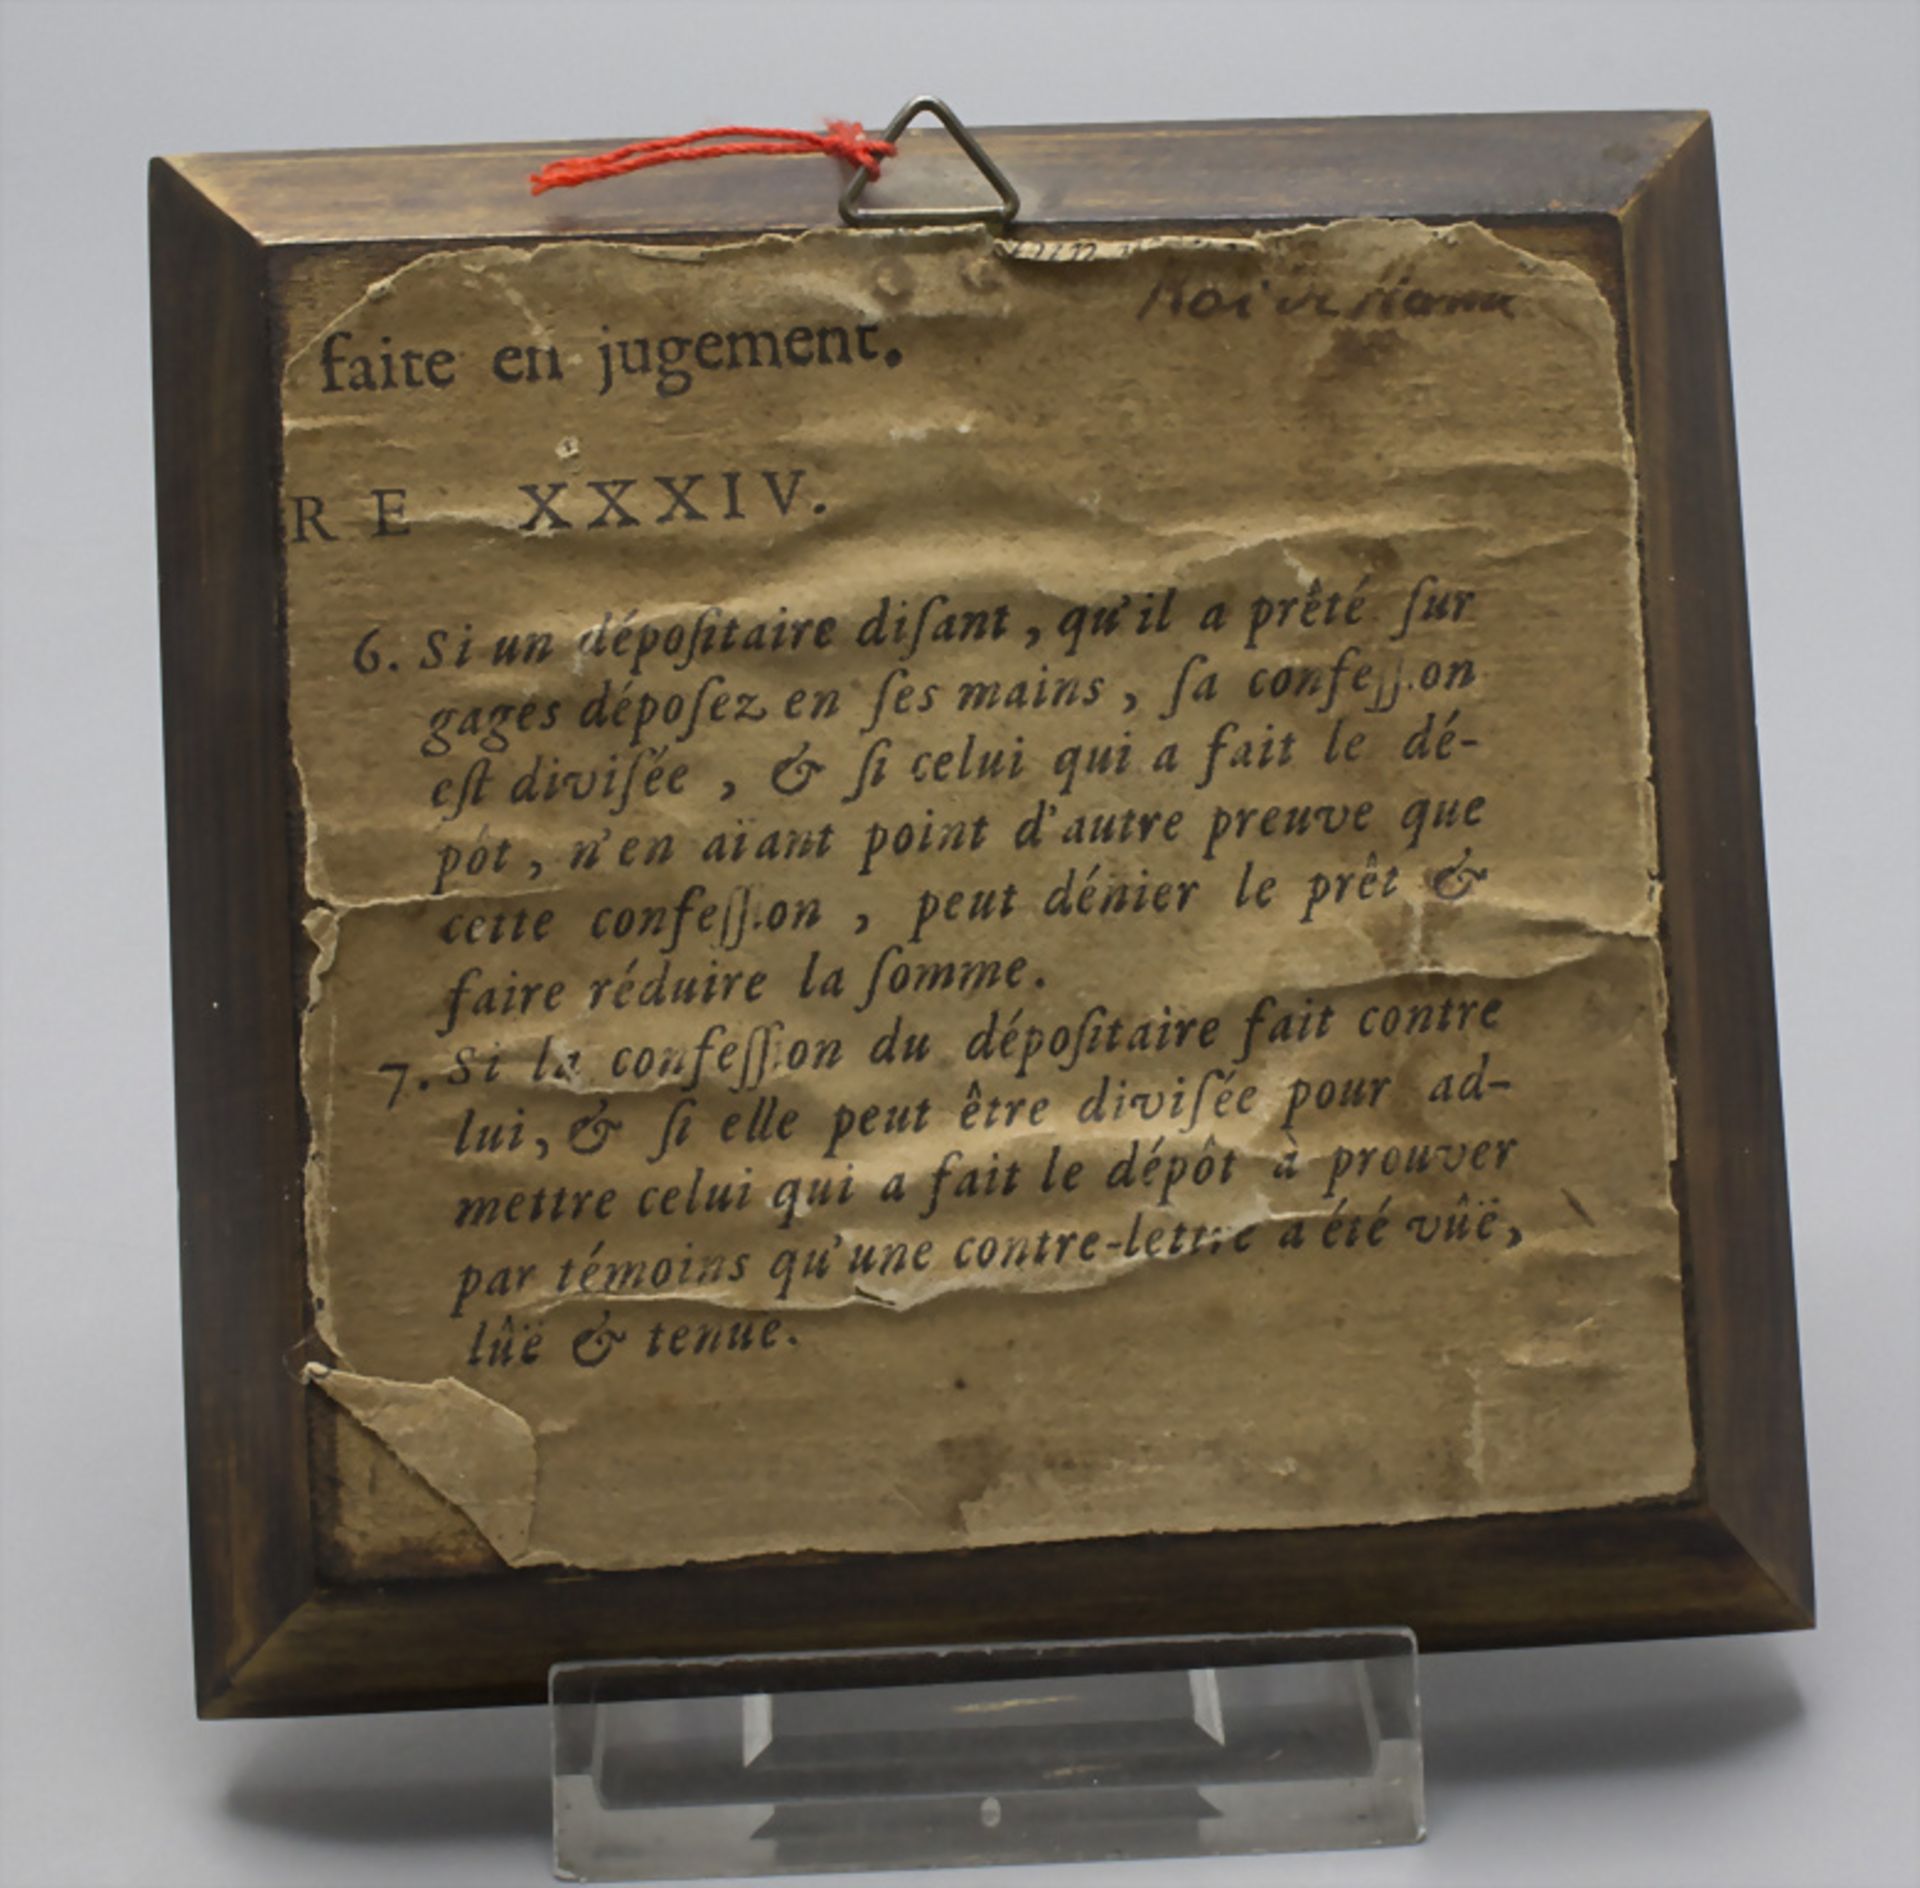 faite en jugement.
RE XXXIV.
6. Si un dépoſitaire diſant, qu'il a prêté ſur
gages dépoſez en ſes mains, ſa confeſſion
eſt diviſée, & ſi celui qui a fait le dé-
pôt, n'en aïant point d'autre preuve que
cette confeſſion, peut dénier le prêt &
faire réduire la ſomme.
7. Si la confeſſion du dépoſitaire fait contre
lui, & ſi elle peut être diviſée pour ad-
mettre celui qui a fait le dépôt à prouver
par témoins qu'une contre-lettre a été vûë,
lûë & tenuë.